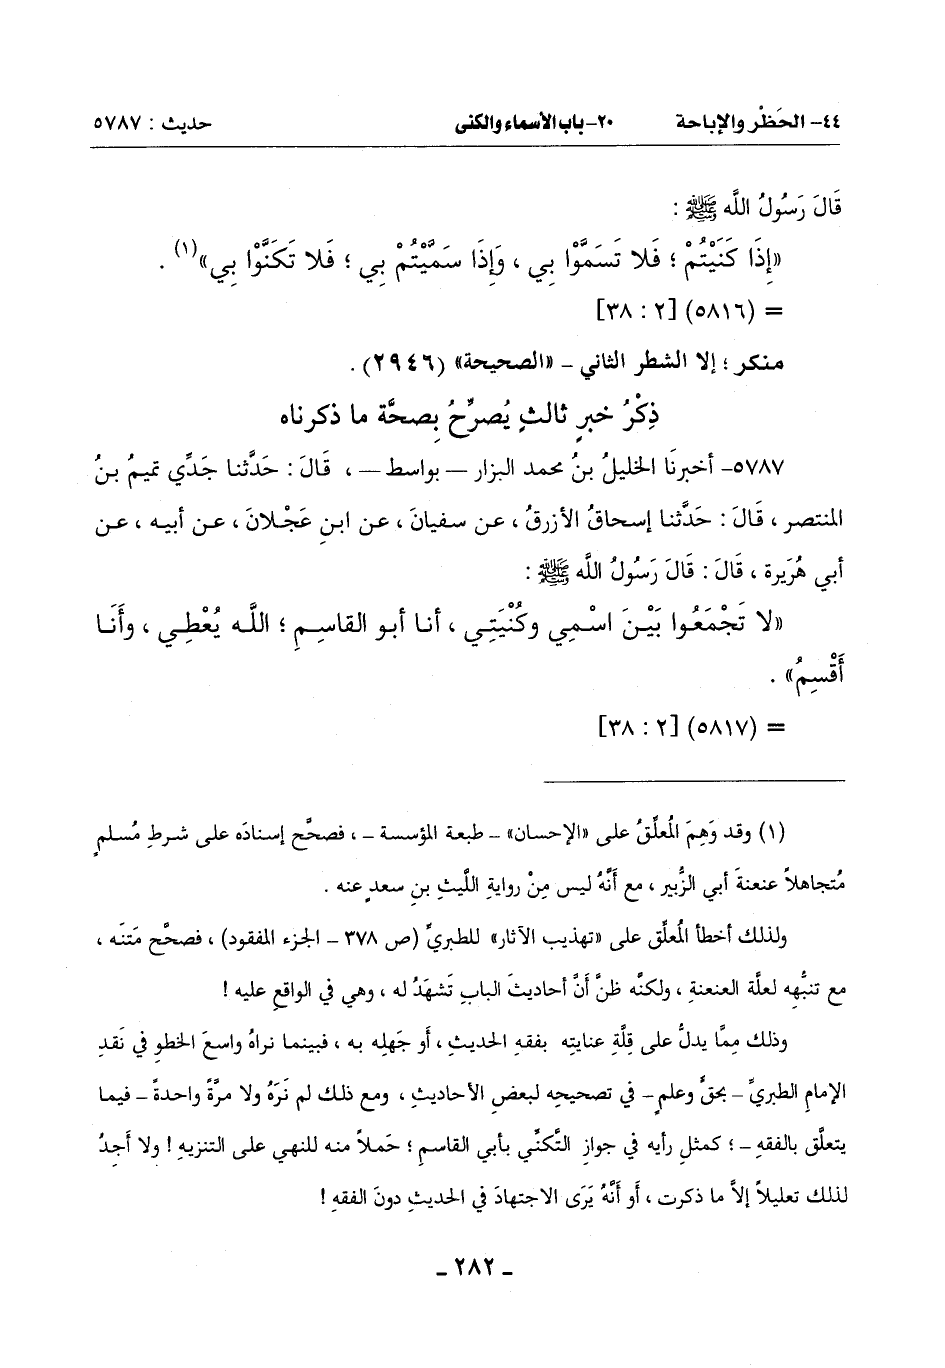 ٤٤- الحَظْر والإباحة ٢٠-باب الأسماء والكنى حديث : ٥٧٨٧
قَالَ رَسُولُ اللَّه ﷺ :
«إِذَا كَنَيْتُمْ ؛ فَلا تَسَمَّوْا بِي ، وَإِذَا سَمَّيْتُمْ بِي ؛ فَلا تَكَنَّوْا بِي»(١) .
= (٥٨١٦) [٢ : ٣٨]
منكر ؛ إلا الشطر الثاني - «الصحيحة» (٢٩٤٦) .
ذِكْرُ خبرٍ ثالثٍ يُصرِّحُ بِصحَّة ما ذكرناه
٥٧٨٧- أخبرنَا الخليلُ بنُ محمد البزار — بواسط — ، قَالَ : حَدَّثنا جَدِّي تميمُ بنُ
المنتصر ، قَالَ : حَدَّثنا إسحاقُ الأزرقُ ، عن سفيان ، عن ابنِ عَجْلانَ ، عن أبيه ، عن
أبي هُرَيرة ، قَالَ : قَالَ رَسُولُ اللَّه ﷺ :
«لا تَجْمَعُوا بَيْنَ اسْمِي وكُنْيَتِي ، أنا أبو القاسِمِ ؛ اللَّه يُعْطِي ، وأَنَا
أَقْسِمُ» .
= (٥٨١٧) [٢ : ٣٨]
(١) وقد وَهِمَ المُعلِّقُ على «الإحسان» - طبعة المؤسسة - ، فصحَّح إسنادَه على شرطِ مُسلمٍ
مُتجاهلاً عنعنةَ أبي الزُّبير ، مع أنَّهُ ليس مِنْ روايةِ اللَّيثِ بنِ سعدٍ عنه .
ولذلك أخطأ المُعلِّق على «تهذيب الآثار» للطبريِّ (ص ٣٧٨ - الجزء المفقود) ، فصحَّح مَتنَه ،
مع تنبُّهِه لعلَّة العنعنةِ ، ولكنَّه ظنَّ أنَّ أحاديثَ البابِ تَشهَدُ له ، وهي في الواقعِ عليه !
وذلك مِمَّا يدلُّ على قِلَّةِ عنايتِه بفقهِ الحديثِ ، أو جَهلِه به ، فبينما نراهُ واسعَ الخطو في نَقدِ
الإمامِ الطبريِّ - بحقٍّ وعلمٍ - في تصحيحِه لبعضِ الأحاديثِ ، ومع ذلك لم نَرَهُ ولا مرَّةً واحدةً - فيما
يتعلَّق بالفقهِ - ؛ كمثلِ رأيه في جوازِ التَّكنِّي بأبي القاسمِ ؛ حَملاً منه للنهي على التنزيهِ ! ولا أَجِدُ
لذلك تعليلاً إلاَّ ما ذكرت ، أو أنَّهُ يَرَى الاجتهادَ في الحديثِ دونَ الفقهِ !
- ٢٨٢ -